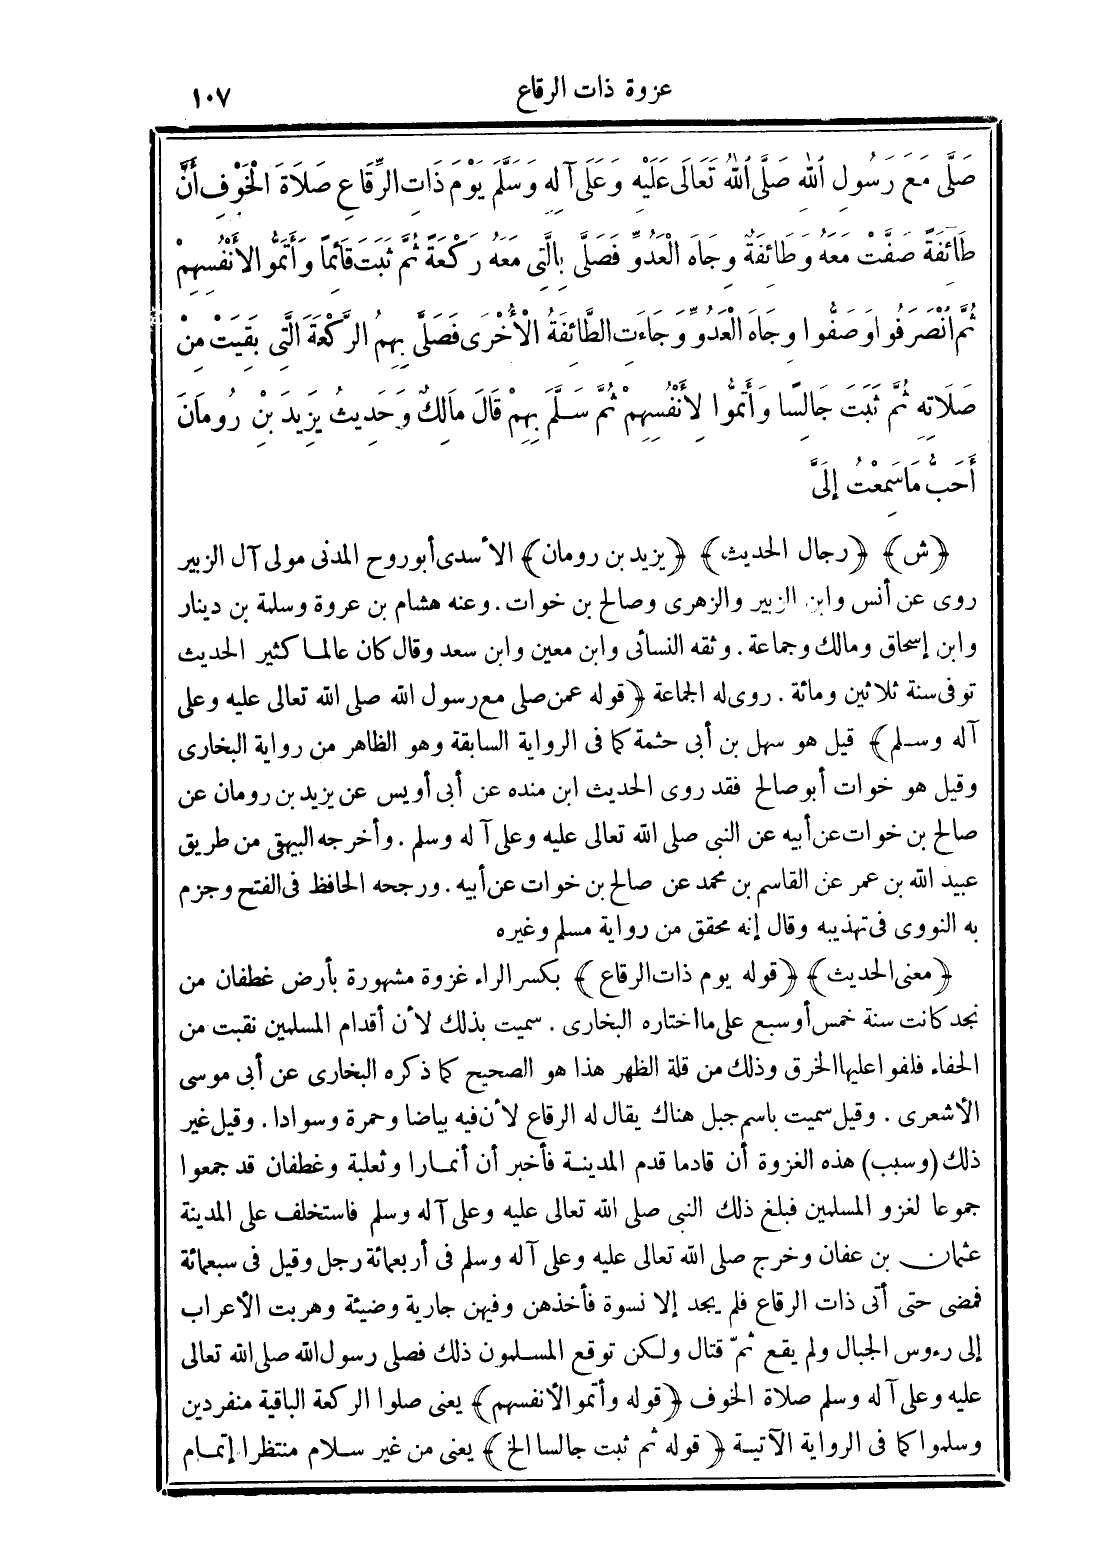 عزوة ذات الرقاع ١٠٧
صَلَّى مَعَ رَسُولِ اللهِ صَلَّى اللهُ تَعَالَى عَلَيْهِ وَعَلَى آلِهِ وَسَلَّمَ يَوْمَ ذَاتِ الرِّقَاعِ صَلَاةَ الْخَوْفِ أَنَّ
طَائِفَةً صَفَّتْ مَعَهُ وَطَائِفَةٌ وِجَاهَ الْعَدُوِّ فَصَلَّى بِالَّتِى مَعَهُ رَكْعَةً ثُمَّ ثَبَتَ قَائِمًا وَأَتَمُّوا لِأَنْفُسِهِمْ
ثُمَّ انْصَرَفُوا وَصَفُّوا وِجَاهَ الْعَدُوِّ وَجَاءَتِ الطَّائِفَةُ الْأُخْرَى فَصَلَّى بِهِمُ الرَّكْعَةَ الَّتِى بَقِيَتْ مِنْ
صَلَاتِهِ ثُمَّ ثَبَتَ جَالِسًا وَأَتَمُّوا لِأَنْفُسِهِمْ ثُمَّ سَلَّمَ بِهِمْ قَالَ مَالِكٌ وَحَدِيثُ يَزِيدَ بْنِ رُومَانَ
أَحَبُّ مَا سَمِعْتُ إِلَىَّ
﴿ش﴾ ﴿رجال الحديث﴾ ﴿يزيد بن رومان﴾ الأسدى أبوروح المدنى مولى آل الزبير
روى عن أنس وابن الزبير والزهرى وصالح بن خوات . وعنه هشام بن عروة وسلمة بن دينار
وابن إسحاق ومالك وجماعة . وثقه النسائى وابن معين وابن سعد وقال كان عالما كثير الحديث
توفى سنة ثلاثين ومائة . روى له الجماعة ﴿قوله عمن صلى مع رسول الله صلى الله تعالى عليه وعلى
آله وسلم﴾ قيل هو سهل بن أبى حثمة كما فى الرواية السابقة وهو الظاهر من رواية البخارى
وقيل هو خوات أبو صالح فقد روى الحديث ابن منده عن أبى أويس عن يزيد بن رومان عن
صالح بن خوات عن أبيه عن النبى صلى الله تعالى عليه وعلى آله وسلم . وأخرجه البيهقى من طريق
عبيد الله بن عمر عن القاسم بن محمد عن صالح بن خوات عن أبيه . ورجحه الحافظ فى الفتح وجزم
به النووى فى تهذيبه وقال إنه محقق من رواية مسلم وغيره
﴿معنى الحديث﴾ ﴿قوله يوم ذات الرقاع﴾ بكسر الراء غزوة مشهورة بأرض غطفان من
نجد كانت سنة خمس أو سبع على ما اختاره البخارى . سميت بذلك لأن أقدام المسلمين نقبت من
الحفاء فلفوا عليها الخرق وذلك من قلة الظهر هذا هو الصحيح كما ذكره البخارى عن أبى موسى
الأشعرى . وقيل سميت باسم جبل هناك يقال له الرقاع لأن فيه بياضا وحمرة وسوادا . وقيل غير
ذلك (وسبب) هذه الغزوة أن قادما قدم المدينة فأخبر أن أنمارا وثعلبة وغطفان قد جمعوا
جموعا لغزو المسلمين فبلغ ذلك النبى صلى الله تعالى عليه وعلى آله وسلم فاستخلف على المدينة
عثمان بن عفان وخرج صلى الله تعالى عليه وعلى آله وسلم فى أربعمائة رجل وقيل فى سبعمائة
فمضى حتى أتى ذات الرقاع فلم يجد إلا نسوة فأخذهن وفيهن جارية وضيئة وهربت الأعراب
إلى رءوس الجبال ولم يقع ثمّ قتال ولكن توقع المسلمون ذلك فصلى رسول الله صلى الله تعالى
عليه وعلى آله وسلم صلاة الخوف ﴿قوله وأتموا لأنفسهم﴾ يعنى صلوا الركعة الباقية منفردين
وسلموا كما فى الرواية الآتية ﴿قوله ثم ثبت جالسا الخ﴾ يعنى من غير سلام منتظرا إتمام